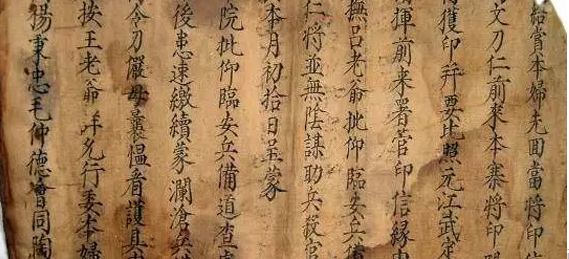 本婦先回當將印
文刀仁前來本寨將印
獲印并要比照元江武定
揮前來署管印信緣由
撫呂老爺批仰臨安兵備
仁將並無陰謀助兵殺官
本月初拾日呈蒙
院批仰臨安兵備道查
後患速繳續蒙瀾滄兵
令刀嚴母曩慍看護且
按王老爺詳允行委本婦
楊秉忠毛仲德會同陶